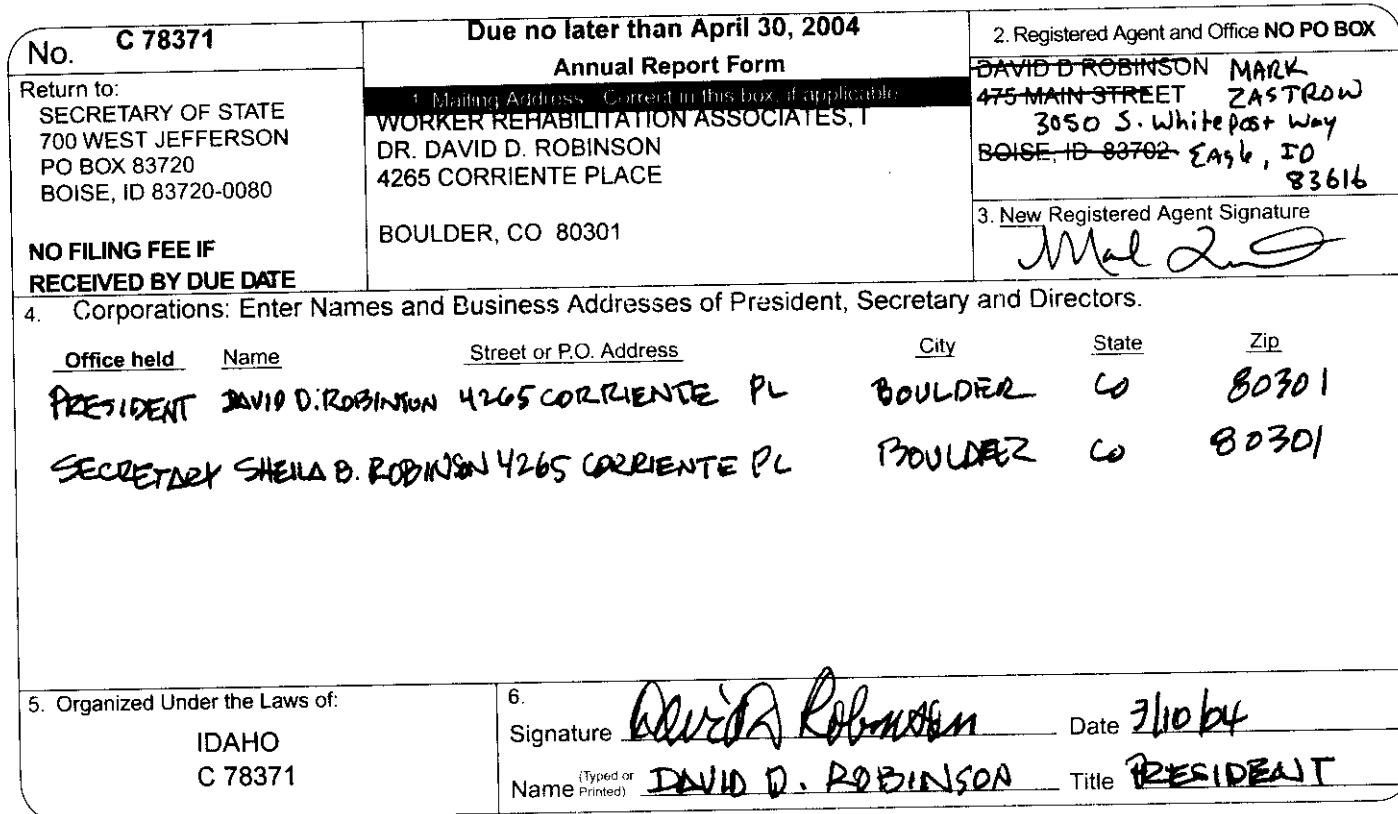 No. C 78371
Return to:
SECRETARY OF STATE
700 WEST JEFFERSON
PO BOX 83720
BOISE, ID 83720-0080
NO FILING FEE IF
RECEIVED BY DUE DATE
Due no later than April 30, 2004
Annual Report Form
1. Mailing Address. Correct in this box, if applicable
WORKER REHABILITATION ASSOCIATES, I
DR. DAVID D. ROBINSON
4265 CORRIENTE PLACE
BOULDER, CO 80301
2. Registered Agent and Office NO PO BOX
DAVID D ROBINSON MARK
475 MAIN STREET ZASTROW
3050 S. Whitepost Way
BOISE, ID 83702 Eagle, ID
83616
3. New Registered Agent Signature
4. Corporations: Enter Names and Business Addresses of President, Secretary and Directors.
Office held Name Street or P.O. Address City State Zip
PRESIDENT DAVID D. ROBINSON 4265 CORRIENTE PL BOULDER CO 80301
SECRETARY SHEILA B. ROBINSON 4265 CORRIENTE PL BOULDER CO 80301
5. Organized Under the Laws of:
IDAHO
C 78371
6.
Signature David D Robinson Date 3/10/04
Name (Typed or Printed) DAVID D. ROBINSON Title PRESIDENT